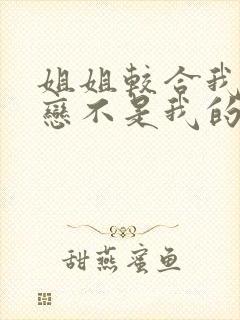 姐姐較合我
戀不是我的
甜燕蜜鱼